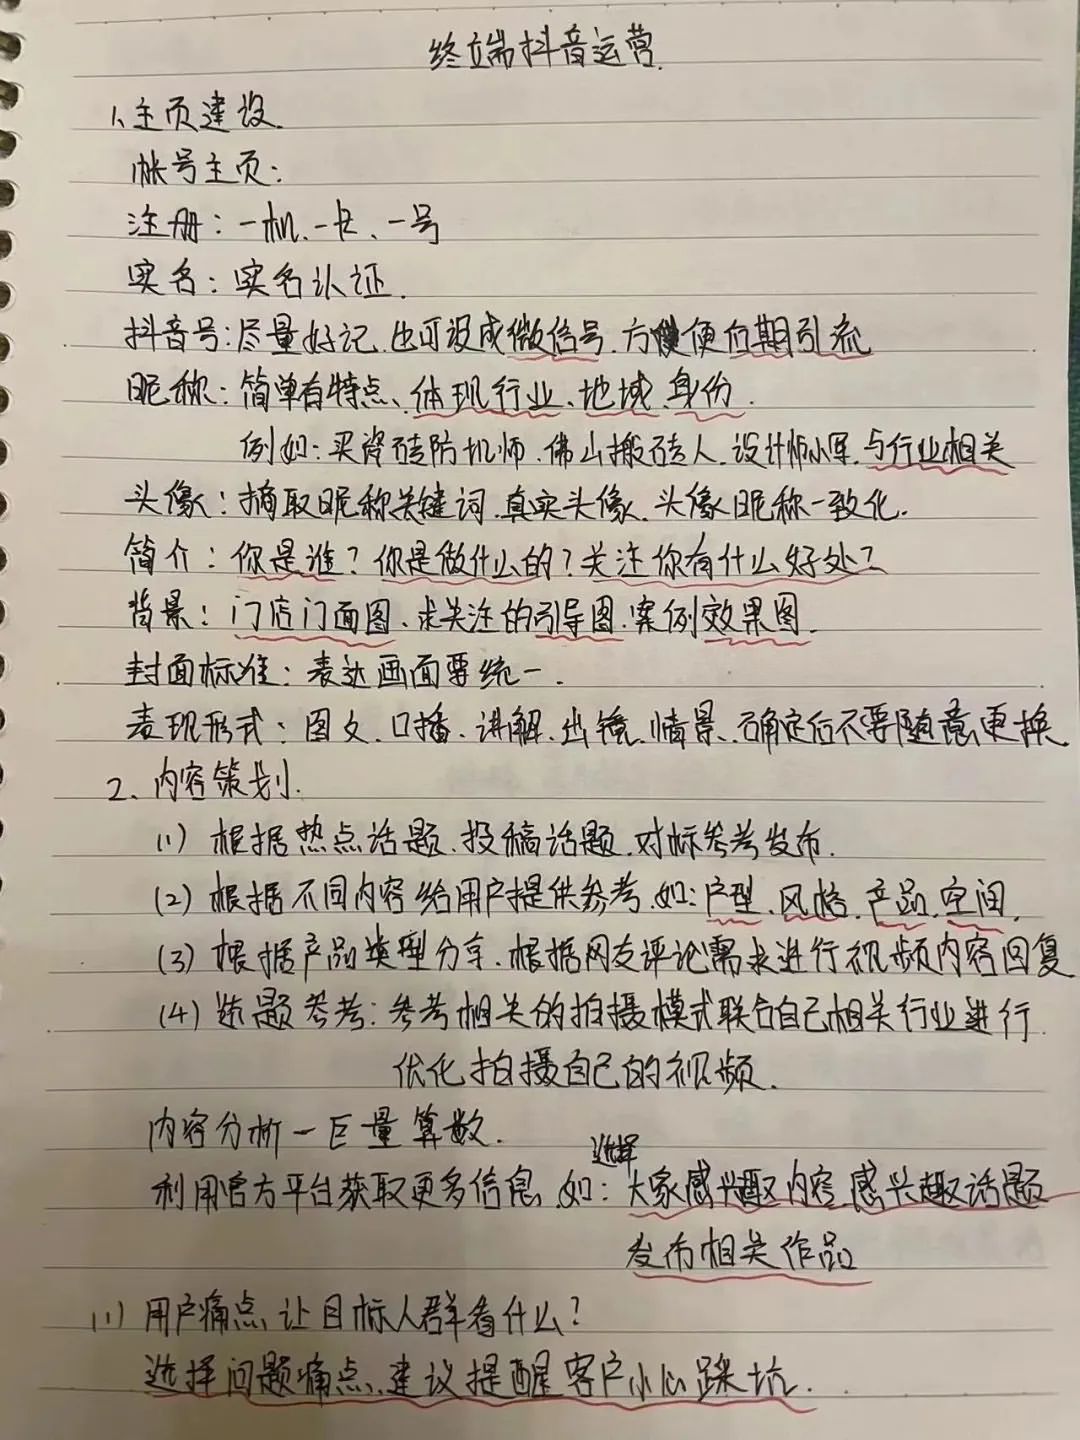 终端抖音运营.
1、主页建设.
帐号主页:
注册: 一机、一卡、一号
实名: 实名认证.
抖音号: 尽量好记、也可设成微信号、方便后期引流
昵称: 简单有特点、体现行业、地域、身份.
例如: 买瓷砖防坑师、佛山搬砖人、设计师小军、与行业相关
头像: 摘取昵称关键词、真实头像、头像昵称一致化.
简介: 你是谁? 你是做什么的? 关注你有什么好处?
背景: 门店门面图、求关注的引导图、案例效果图.
封面标准: 表达画面要统一.
表现形式: 图文、口播、讲解、出镜、情景、确定后不要随意更换
2、内容策划.
(1) 根据热点话题、投稿话题、对标参考发布.
(2) 根据不同内容给用户提供参考、如: 户型、风格、产品、空间.
(3) 根据产品类型分享、根据网友评论需求进行视频内容回复
(4) 选题参考: 参考相关的拍摄模式联合自己相关行业进行
优化拍摄自己的视频.
内容分析一巨量算数.
利用官方平台获取更多信息、如: 选择大家感兴趣内容、感兴趣话题
发布相关作品
(1) 用户痛点、让目标人群看什么?
选择问题痛点、建议提醒客户小心踩坑.